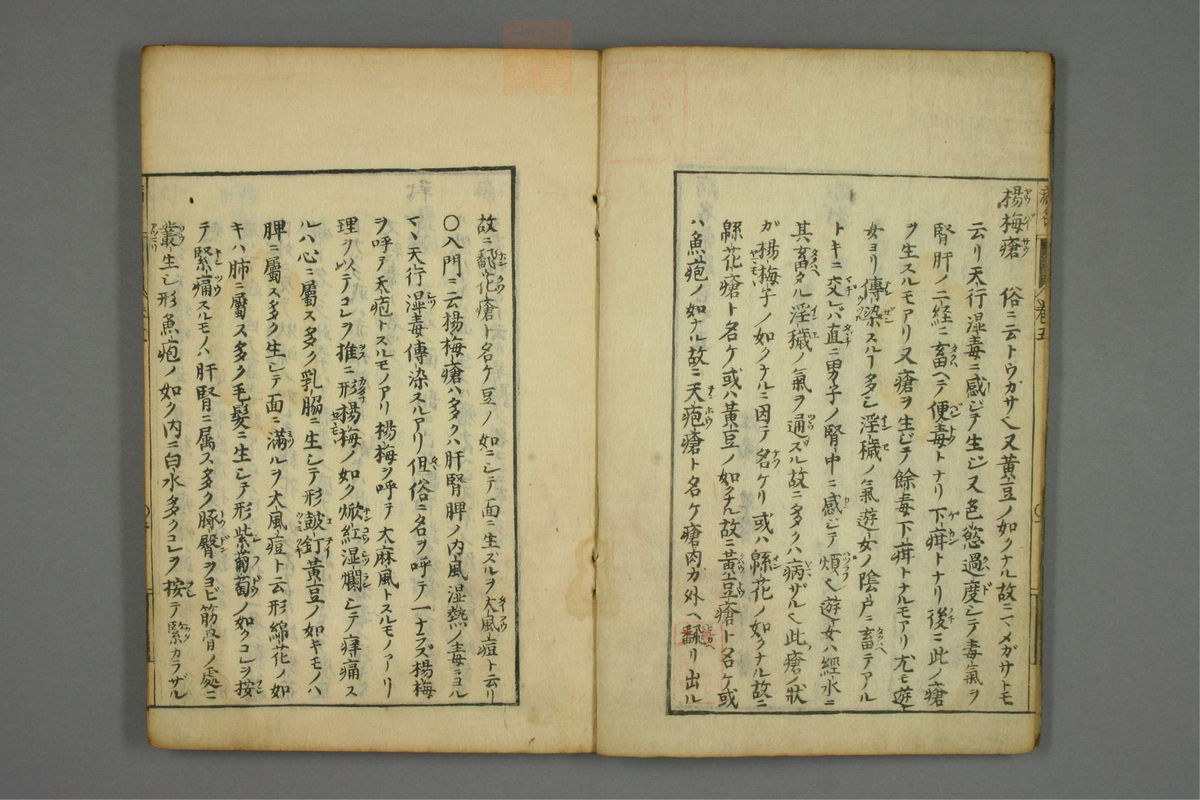 楊梅瘡 俗ニ云トウガサ也又黄豆ノ如クナル故ニマメガサトモ
云リ天行湿毒ニ感ジテ生ジ又色慾過度シテ毒氣ヲ
腎肝ノ二経ニ畜ヘテ便毒トナリ下疳トナリ後ニ此ノ瘡
ヲ生スルモアリ又瘡ヲ生ジテ餘毒下疳トナルモアリ尤モ遊
女ヨリ傳染スルヿ多シ淫穢ノ氣遊女ノ陰戸ニ畜テアル
トキニ交レバ直ニ男子ノ腎中ニ感ジテ煩也遊女ハ經水ニ
其畜タル淫穢ノ氣ヲ通ズル故ニ多クハ病ザル也此瘡ノ状
ガ楊梅子ノ如クナルニ因テ名ケリ或ハ緜花ノ如クナル故ニ
緜花瘡ト名ケ或ハ黄豆ノ如クナル故ニ黄豆瘡ト名ケ或
ハ魚疱ノ如ナル故ニ天疱瘡ト名ケ瘡肉ガ外ヘ飜リ出ル
故ニ飜花瘡ト名ケ豆ノ如ニシテ面ニ生ズルヲ大風痘ト云リ
〇入門ニ云楊梅瘡ハ多クハ肝腎脾ノ内風湿熱ノ毒ニヨル
天行湿毒傳染スルアリ但俗ニ名ヲ呼テ一ナラズ楊梅
ヲ呼テ天疱トスルモノアリ楊梅ヲ呼テ大麻風トスルモノアリ
理ヲ以テコレヲ推ニ形楊梅ノ如ク焮紅湿爛シテ痒痛ス
ルハ心ニ屬ス多ク乳脇ニ生シテ形皷釘黄豆ノ如キモノハ
脾ニ屬ス多ク生シテ面ニ滿ルヲ大風痘ト云形綿花ノ如
キハ肺ニ屬ス多ク毛髪ニ生シテ形紫葡萄ノ如クコレヲ按
テ緊痛スルモノハ肝腎ニ属ス多ク豚臀ヲヨビ筋骨ノ處ニ
叢生シ形魚疱ノ如ク内ニ白水多クコレヲ按テ緊カラザル
巻五